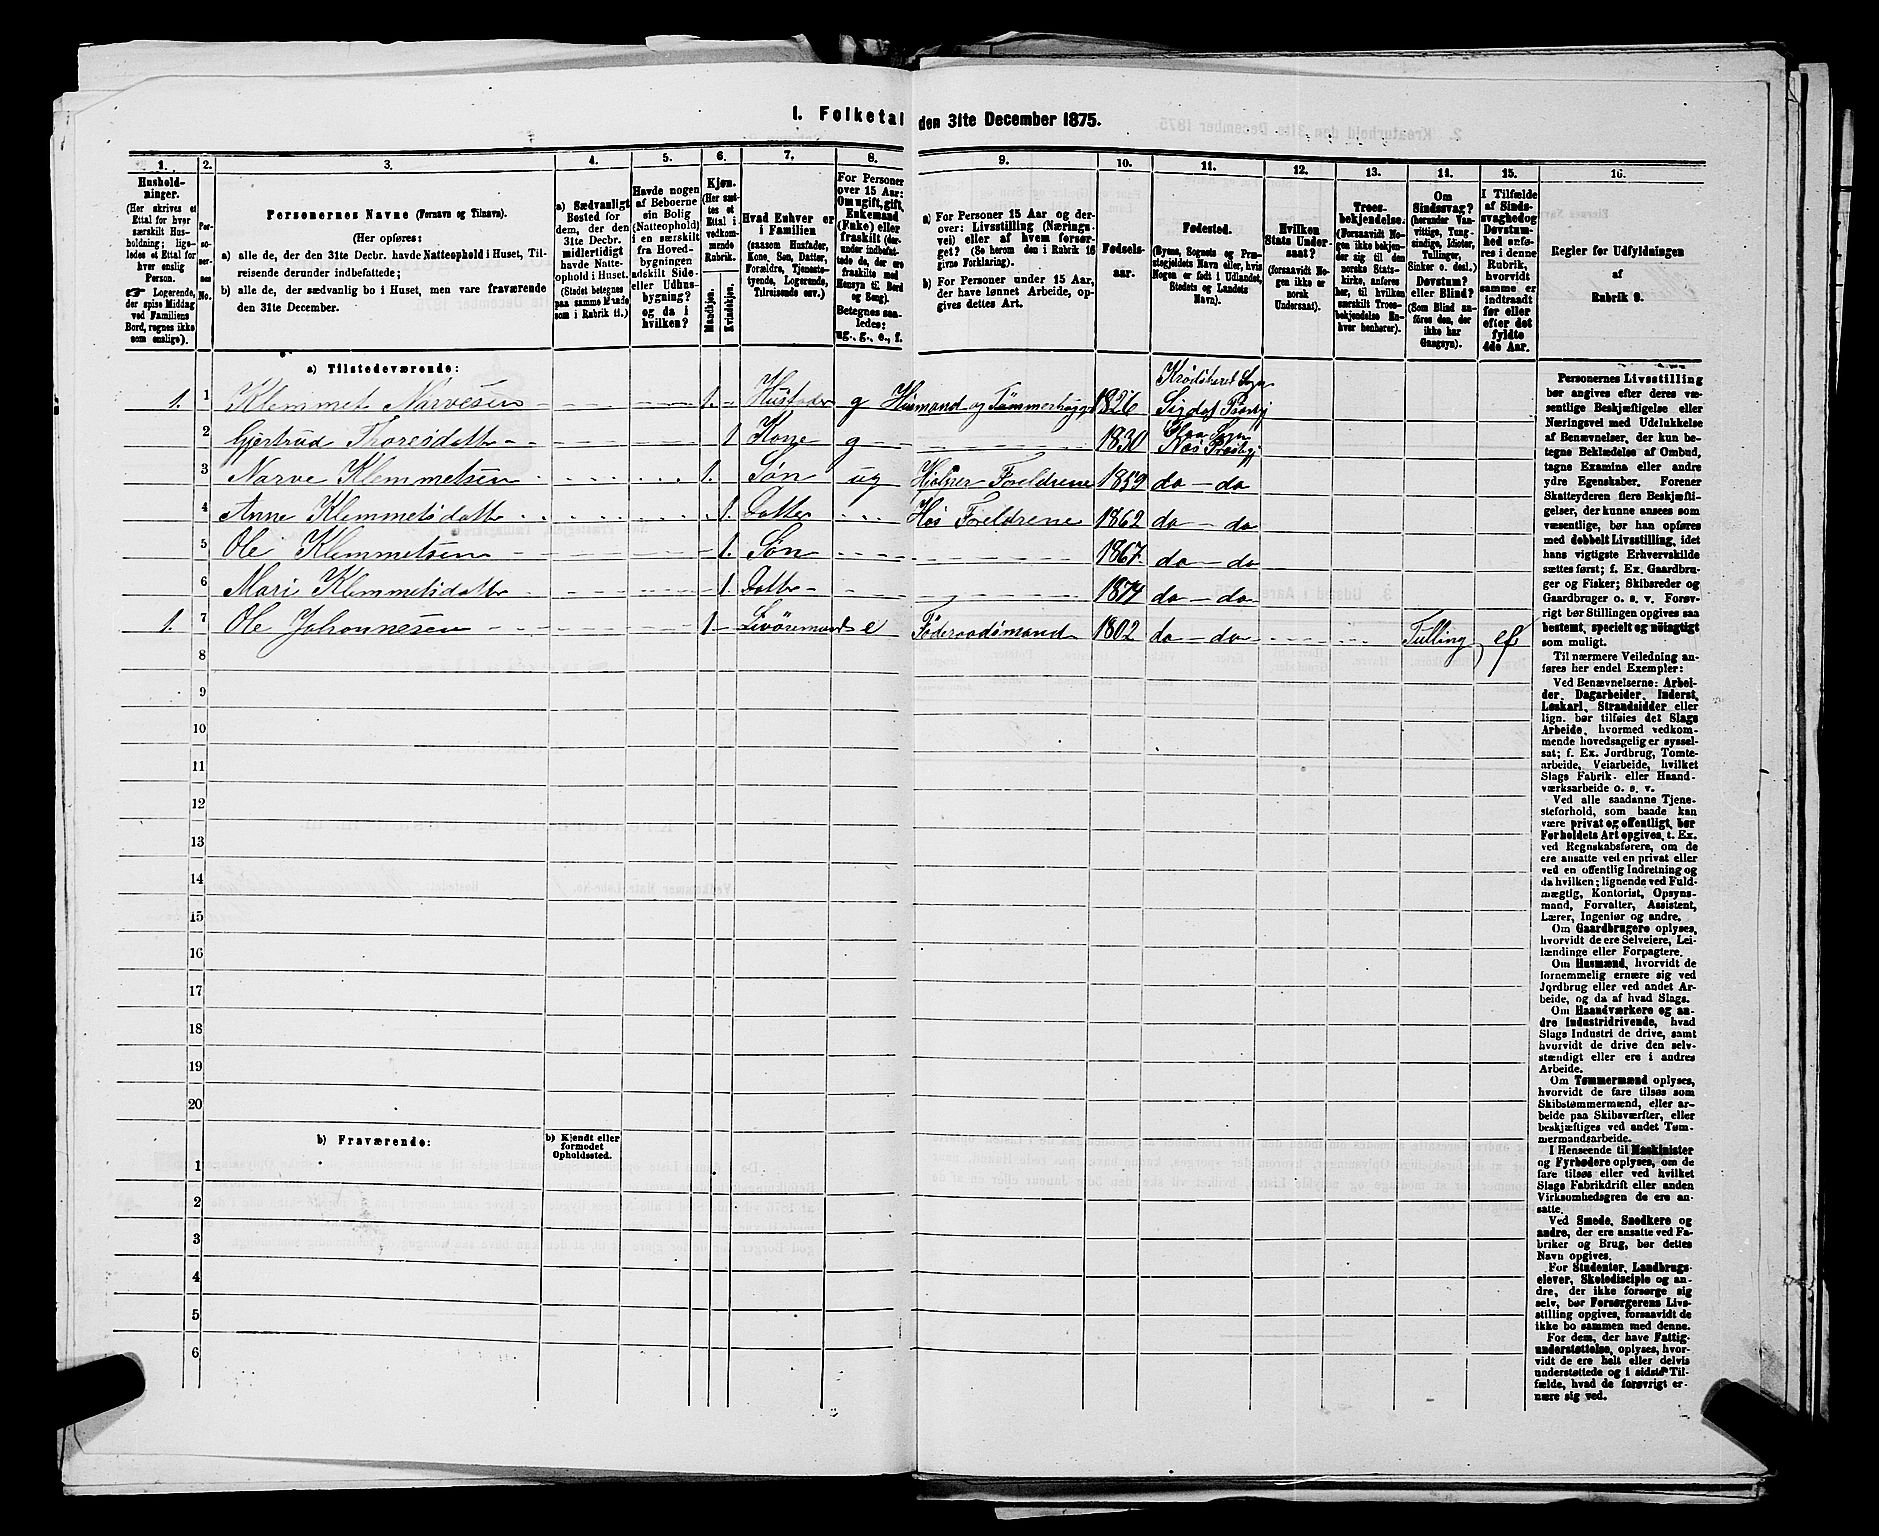 1. Folketal den 31te December 1875.
1. 2. 3. 4. 5. 6. 7. 8. 9. 10. 11. 12. 13. 14. 15. 16.
Hushold-
ninger.
(Her skrives et
Ettal for hver
særskilt Hus-
holdning; lige-
ledes et Ettal for
hver enslig
Person.
☞ Logerende,
der spise Middag
ved Familiens
Bord, regnes ikke
som enslige).
Per-
so-
ner-
nes
No.
Personernes Navne (Fornavn og Tilnavn).
(Her opføres:
a) alle de, der den 31te Decbr. havde Natteophold i Huset, Til-
reisende derunder indbefattede;
b) alle de, der sædvanlig bo i Huset, men vare fraværende
den 31te December.
a) Sædvanligt
Bosted for
dem, der den
31te Decbr.
midlertidigt
havde Natte-
ophold i Huset.
(Stedet betegnes
paa samme Maade
som i Rubrik 11.)
Havde nogen
af Beboerne
sin Bolig
(Natteophold)
i en særskilt
fra Hoved-
bygningen
adskilt Side-
eller Udhus-
bygning?
og da i
hvilken?
Kjøn.
(Her sæt-
tes et
Ettal i
vedkom-
mende
Rubrik.
Mandkjøn.
Kvindekjøn.
Hvad Enhver er
i Familien
(saasom Husfader,
Kone, Søn, Datter,
Forældre, Tjeneste-
tyende, Logerende,
Tilreisende osv.)
For Personer
over 15 Aar:
Om ugift, gift,
Enkemand
(Enke) eller
fraskilt (der-
under indbefat-
tede de, der ere
fraskilte med
Hensyn til Bord
og Seng).
Betegnes saa-
ledes:
ug., g., e., f.
a) For Personer 15 Aar og der-
over: Livsstilling (Nærings-
vei) eller af hvem forsør-
get? (Se herom den i Rubrik 16
givne Forklaring).
b) For Personer under 15 Aar,
der have lønnet Arbeide, op-
gives dettes Art.
Fødsels-
aar.
Fødested.
(Byens, Sognets og Præ-
stegjeldets Navn eller, hvis
Nogen er født i Udlandet,
Stedets og Landets
Navn).
Hvilken
Stats Under-
saat?
(forsaavidt No-
gen ikke er
norsk
Undersaat).
Troes-
bekjendelse.
(Forsaavidt No-
gen ikke bekjen-
der sig til den
norske Stats-
kirke, anføres
her, til hvilken
særskilt Troes-
bekjendelse En-
hver henhører).
Om
Sindssvag?
(herunder Van-
vittige, Tung-
sindige, Idioter,
Tullinger,
Sinker o. desl.)
Døvstum?
eller Blind?
(Som Blind an-
føres den, der
ikke har
Gangsyn).
I Tilfælde
af Sinds-
svaghed og
Døvstum-
hed anfø-
res i denne
Rubrik,
hvorvidt
samme er
indtraadt
før eller
efter det
fyldte
4de Aar.
Regler før Udfyldningen
af
Rubrik 9.
a) Tilstedeværende:
1. 1 Klemmet Narvesen 1. Husfader g Husmand og Tømmerhugger 1826 Krødsherret Sogn Sigdal Præstgj
2 Gjertrud Thoresdatter 1 Kone g 1830 Flaa Sogn Næs Præstgj
3 Narve Klemmetsen 1. Søn ug Hjelper Foreldrene 1859 do - do
4 Anne Klemmetsdatter 1. Datter Hos Foreldrene 1862 do - do
5 Ole Klemmetsen 1. Søn 1867 do - do
6 Mari Klemmetsdatter 1 Datter 1874 do - do
1. 7 Ole Johannesen 1 e Føderaadsmand 1802 do - do Tulling ef
8
9
10
11
12
13
14
15
16
17
18
19
20
b) Fraværende:
b) Kjendt eller
formodet
Opholdssted.
1
2
3
4
5
6
Personernes Livsstilling
bør angives efter deres væ-
sentlige Beskjæftigelse eller
Næringsvei med Udelukkelse
af Benævnelser, der kun be-
tegne Beklædelse af Ombud,
tagne Examina eller andre
ydre Egenskaber. Forener
Skatteyderen flere Beskjæfti-
gelser, der kunne ansees som
væsentlige, bør han opføres
med dobbelt Livsstilling, idet
hans vigtigste Erhvervskilde
sættes først; f. Ex. Gaardbru-
ger og Fisker; Skibsreder og
Gaardbruger o. s. v. Forøv-
rigt bør Stillingen opgives saa
bestemt, specielt og nöiagtigt
som muligt.
Til nærmere Veiledning an-
føres her endel Exempler:
Ved Benævnelserne: Arbei-
der, Dagarbeider, Inderst,
Løskarl, Strandsidder eller
lign. bør tilføies det Slags
Arbeide, hvormed vedkom-
mende hovedsagelig er syssel-
sat; f. Ex. Jordbrug, Tomte-
arbeide, Veiarbeide, hvilket
Slags Fabrik- eller Haand-
værksarbeide o. s. v.
Ved alle saadanne Tjene-
steforhold, som baade kan
være privat og offentligt, bør
Forholdets Art opgives, t. Ex.
ved Regnskabsførere, om de
ere ansatte ved en privat eller
ved en offentlig Indretning og
da hvilken; lignende ved Fuld-
mægtig, Kontorist, Opsyns-
mand, Forvalter, Assistent,
Lærer, Ingeniør og andre.
Om Gaardbrugere oplyses,
hvorvidt de ere Selveiere, Lei-
lændinge eller Forpagtere.
Om Husmænd, hvorvidt de
fornemmelig ernære sig ved
Jordbrug eller ved andet Ar-
beide, og da af hvad Slags.
Om Haandværkere og an-
dre Industridrivende, hvad
Slags Industri de drive, samt
hvorvidt de drive den selv-
stændigt eller ere i andres
Arbeide.
Om Tømmermænd oplyses,
hvorvidt de fare tilsøs som
Skibstømmermænd, eller ar-
beide paa Skibsværfter, eller
beskjæftiges ved andet Tøm-
mermandsarbeide.
I Henseende til Maskinister
og Fyrbødere oplyses, om de
fare tilsøs eller ved hvilket
Slags Fabrikdrift eller anden
Virksomhedsgren de ere an-
satte.
Ved Smede, Snedkere og
andre, der ere ansatte ved Fa-
briker og Brug, bør dettes
Navn opgives.
For Studenter, Landbrugs-
elever, Skoledisciple og an-
dre, der ikke forsørge sig
selv, bør Forsørgerens Livs-
stilling opgives, forsaavidt de
ikke bo sammen med denne.
For dem, der have Fattig-
understøttelse, oplyses, hvor-
vidt de ere helt eller delvis
understøttede og i sidste Til-
fælde, hvad de forøvrigt er-
nære sig ved.